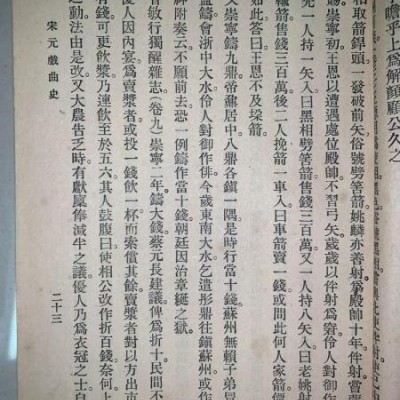 瞻乎上爲解頤顧公久之
相取箭銲頭一發破前矢俗號劈筈箭姚麟亦善射爲殿帥十年伴射嘗
崇寧初王恩以遭遇處位殿帥不習弓矢歲歲以伴射爲窘伶人對御作
先一人持一矢入曰黑相劈筈箭售錢三百萬又一人持八矢入曰老姚射
箭售錢三百萬後二人挽箭一車入曰車箭賣一錢或問此何人家箭價
如此答曰王恩不及垜箭
又崇寧鑄九鼎帝鼐居中八鼎各鎭一隅是時行當十錢蘇州無賴子弟冒
盜鑄會浙中大水伶人對御作俳今歲東南大水乞遣彤鼎往鎭蘇州或作
神附奏云不願前去恐一例鑄作當十錢朝廷因治章綖之獄。
曾敏行獨醒雜志(卷九)崇寧二年鑄大錢蔡元長建議俾爲折十民間不
優人因內宴爲賣漿者或投一錢飲一杯而索償其餘賣漿者對以方出市
錢可更飲漿乃連飲至於五六其人鼓腹曰使相公改作折百錢奈何上
之動法由是改又大農告乏時有獻廩俸減半之議優人乃爲衣冠之士自
宋元戲曲史
二十三